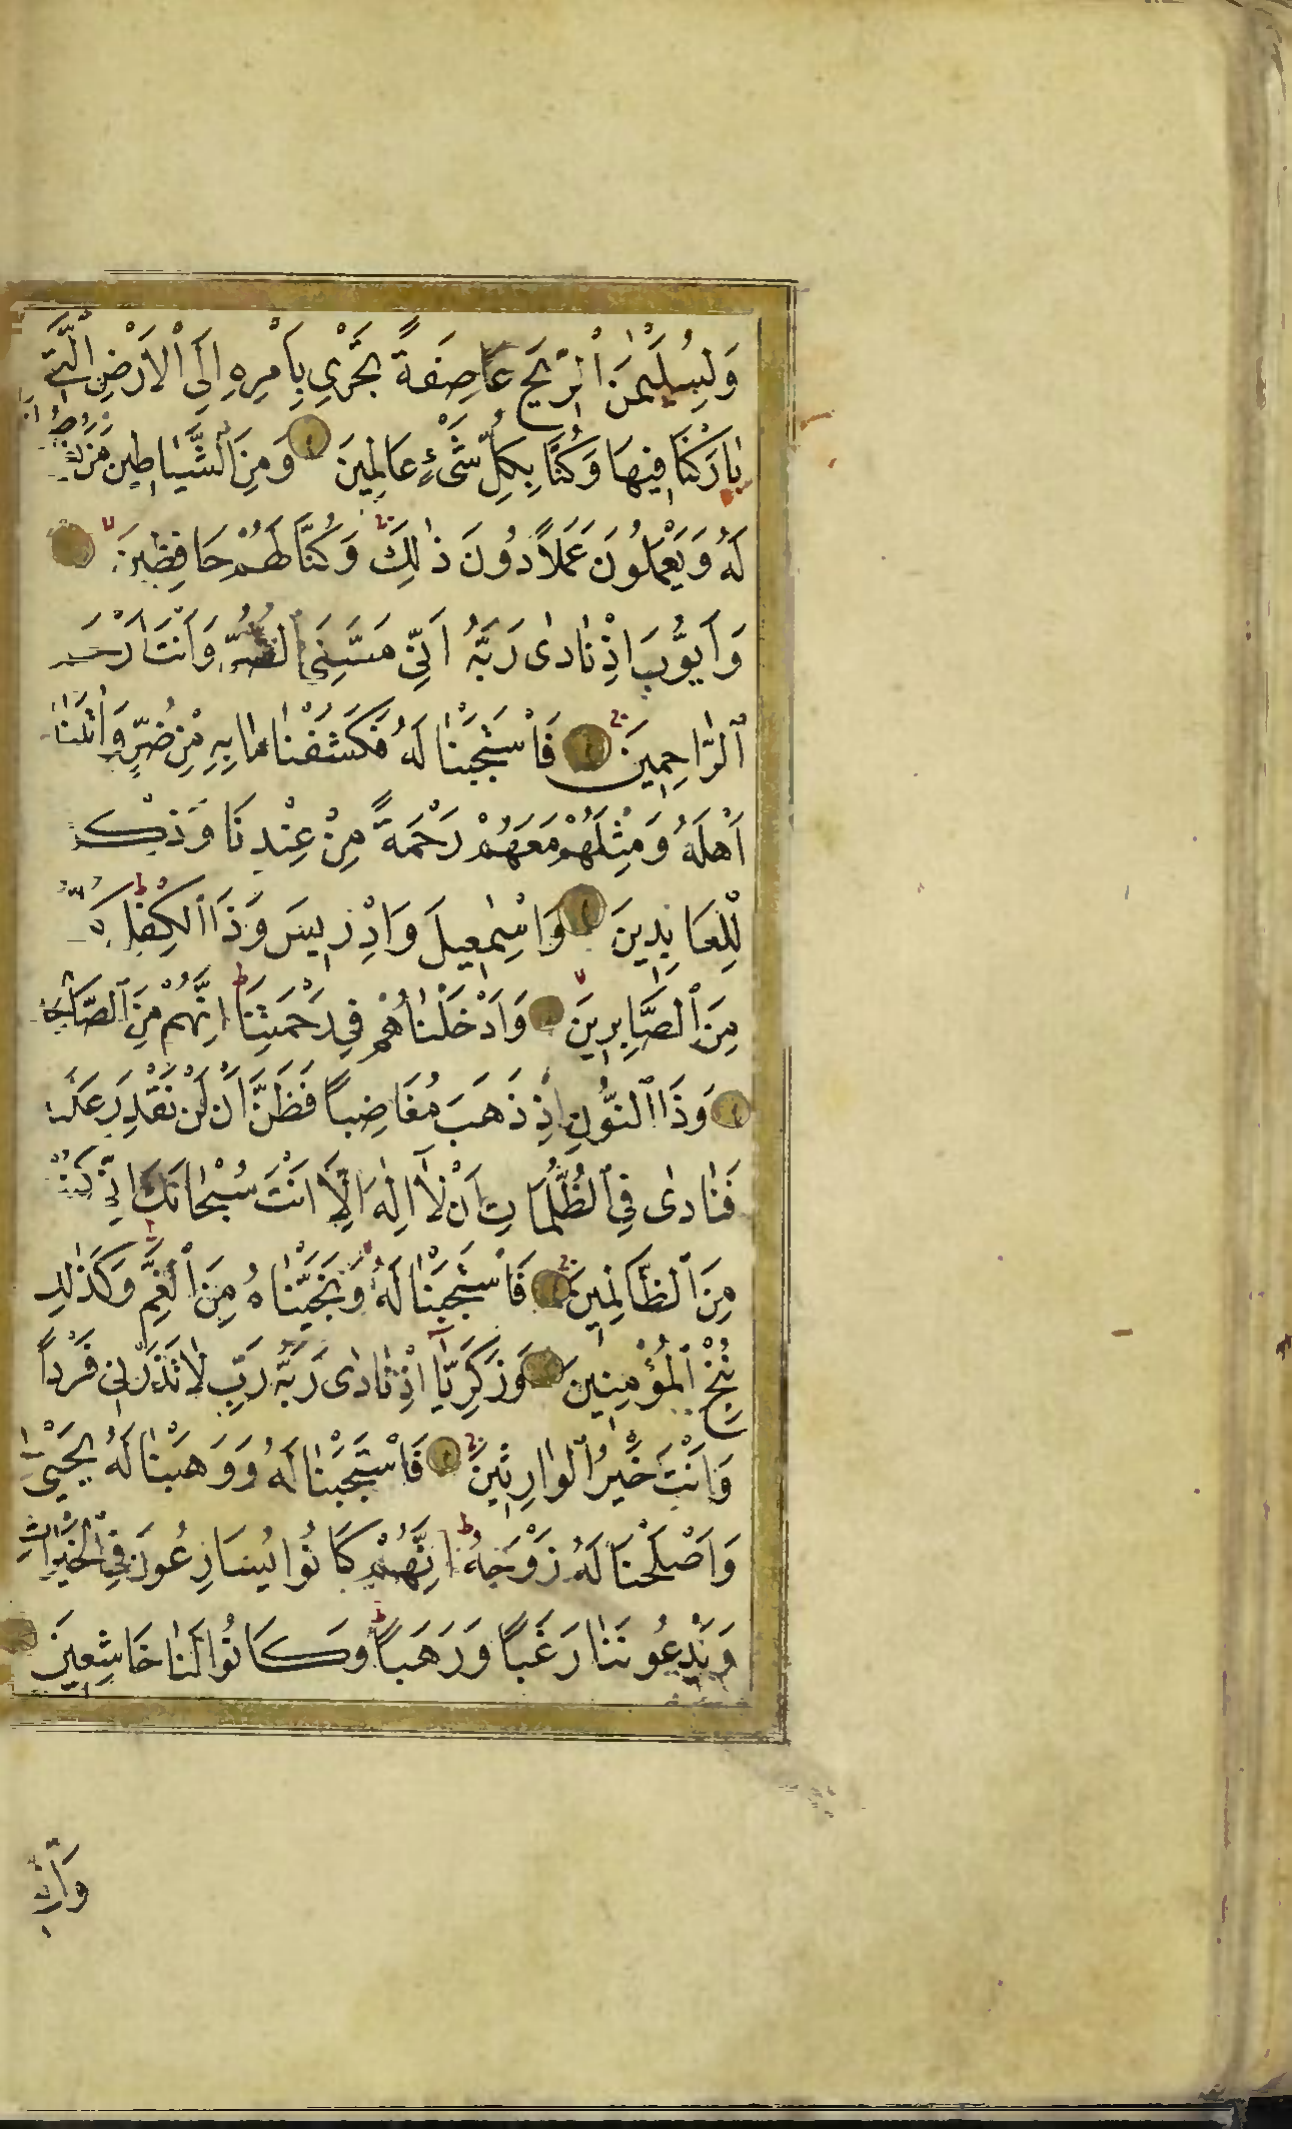 وَلِسُلَيْمٰنَ ٱلرّٖيحَ عَاصِفَةً تَجْرٖي بِاَمْرِهٖ اِلَى ٱلْاَرْضِ ٱلَّتٖي
بٰارَكْنَا فٖيهَا وَكُنَّا بِكُلِّ شَىْءٍ عَالِمٖينَ وَمِنَ ٱلشَّيٰاطٖينِ مَنْ
لَهُ وَيَعْمَلُونَ عَمَلاً دُونَ ذٰلِكَ وَكُنَّا لَهُمْ حَافِظٖينَ
وَاَيُّوبَ اِذْ نٰادىٰ رَبَّهُ اَنّٖي مَسَّنِيَ ٱلضُّرُّ وَاَنْتَ اَرْحَمُ
ٱلرَّاحِمٖينَ فَاسْتَجَبْنٰا لَهُ فَكَشَفْنٰا مٰا بِهٖ مِنْ ضُرٍّ وَاٰتَيْنٰا
اَهْلَهُ وَمِثْلَهُمْ مَعَهُمْ رَحْمَةً مِنْ عِنْدِنَا وَذِكْ
لِلْعَابِدٖينَ وَاِسْمٰعٖيلَ وَاِدْرٖيسَ وَذَا ٱلْكِفْلِ كُلٌّ
مِنَ ٱلصَّابِرٖينَ وَاَدْخَلْنٰاهُمْ فٖي رَحْمَتِنَا اِنَّهُمْ مِنَ ٱلصَّالِحٖ
وَذَا ٱلنُّونِ اِذْ ذَهَبَ مُغَاضِباً فَظَنَّ اَنْ لَنْ نَقْدِرَ عَلَيْهِ
فَنٰادىٰ فِي ٱلظُّلُمَاتِ اَنْ لٰٓا اِلٰهَ اِلَّٓا اَنْتَ سُبْحٰانَكَ اِنّٖي كُنْتُ
مِنَ ٱلظَّالِمٖينَ فَاسْتَجَبْنٰا لَهُ وَنَجَّيْنٰاهُ مِنَ ٱلْغَمِّ وَكَذٰلِكَ
نُنْجِي ٱلْمُؤْمِنٖينَ وَزَكَرِيَّآ اِذْ نٰادىٰ رَبَّهُ رَبِّ لٰا تَذَرْنٖي فَرْداً
وَاَنْتَ خَيْرُ ٱلْوٰارِثٖينَ فَاسْتَجَبْنٰا لَهُ وَوَهَبْنٰا لَهُ يَحْيىٰ
وَاَصْلَحْنَا لَهُ زَوْجَهُ اِنَّهُمْ كَانُوا يُسَارِعُونَ فِي ٱلْخَيْرَاتِ
وَيَدْعُونَنٰا رَغَباً وَرَهَباً وَكَانُوا لَنٰا خَاشِعٖينَ